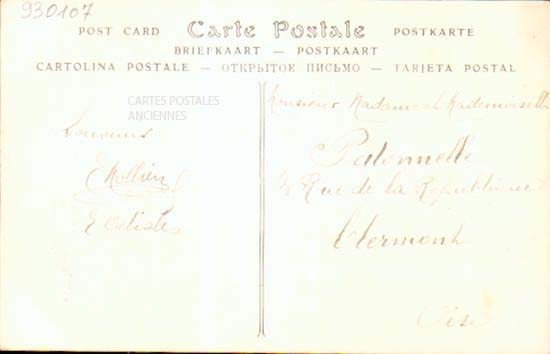 930107
POST CARD Carte Postale POSTKARTE
BRIEFKAART — POSTKAART
CARTOLINA POSTALE — ОТКРЫТОЕ ПИСЬМО — TARJETA POSTAL
CARTES POSTALES
ANCIENNES
Souvenir
Monsieur Madame et Mademoiselle
Rue de la République
Clermont
Oise